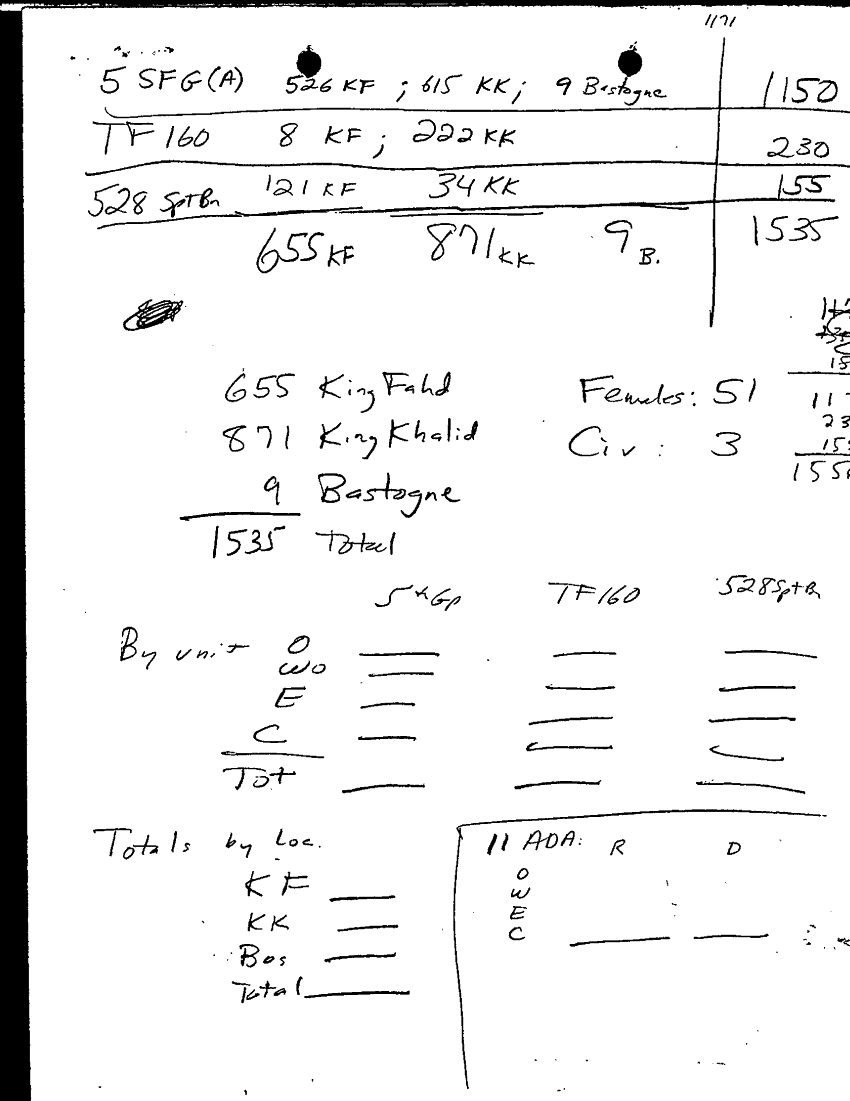 1171
5 SFG(A) 526 KF ; 615 KK; 9 Bastogne 1150
TF 160 8 KF ; 222 KK 230
528 SptBn 121 KF 34 KK 155
655 KF 871 KK 9 B. 1535
655 King Fahd Females: 51
871 King Khalid Civ : 3
9 Bastogne
1535 Total
5th Gp TF 160 528 SptBn
By unit O
WO
E
C
Tot
Totals by Loc. 11 ADA: R D
KF O
KK W
Bas E
Total C